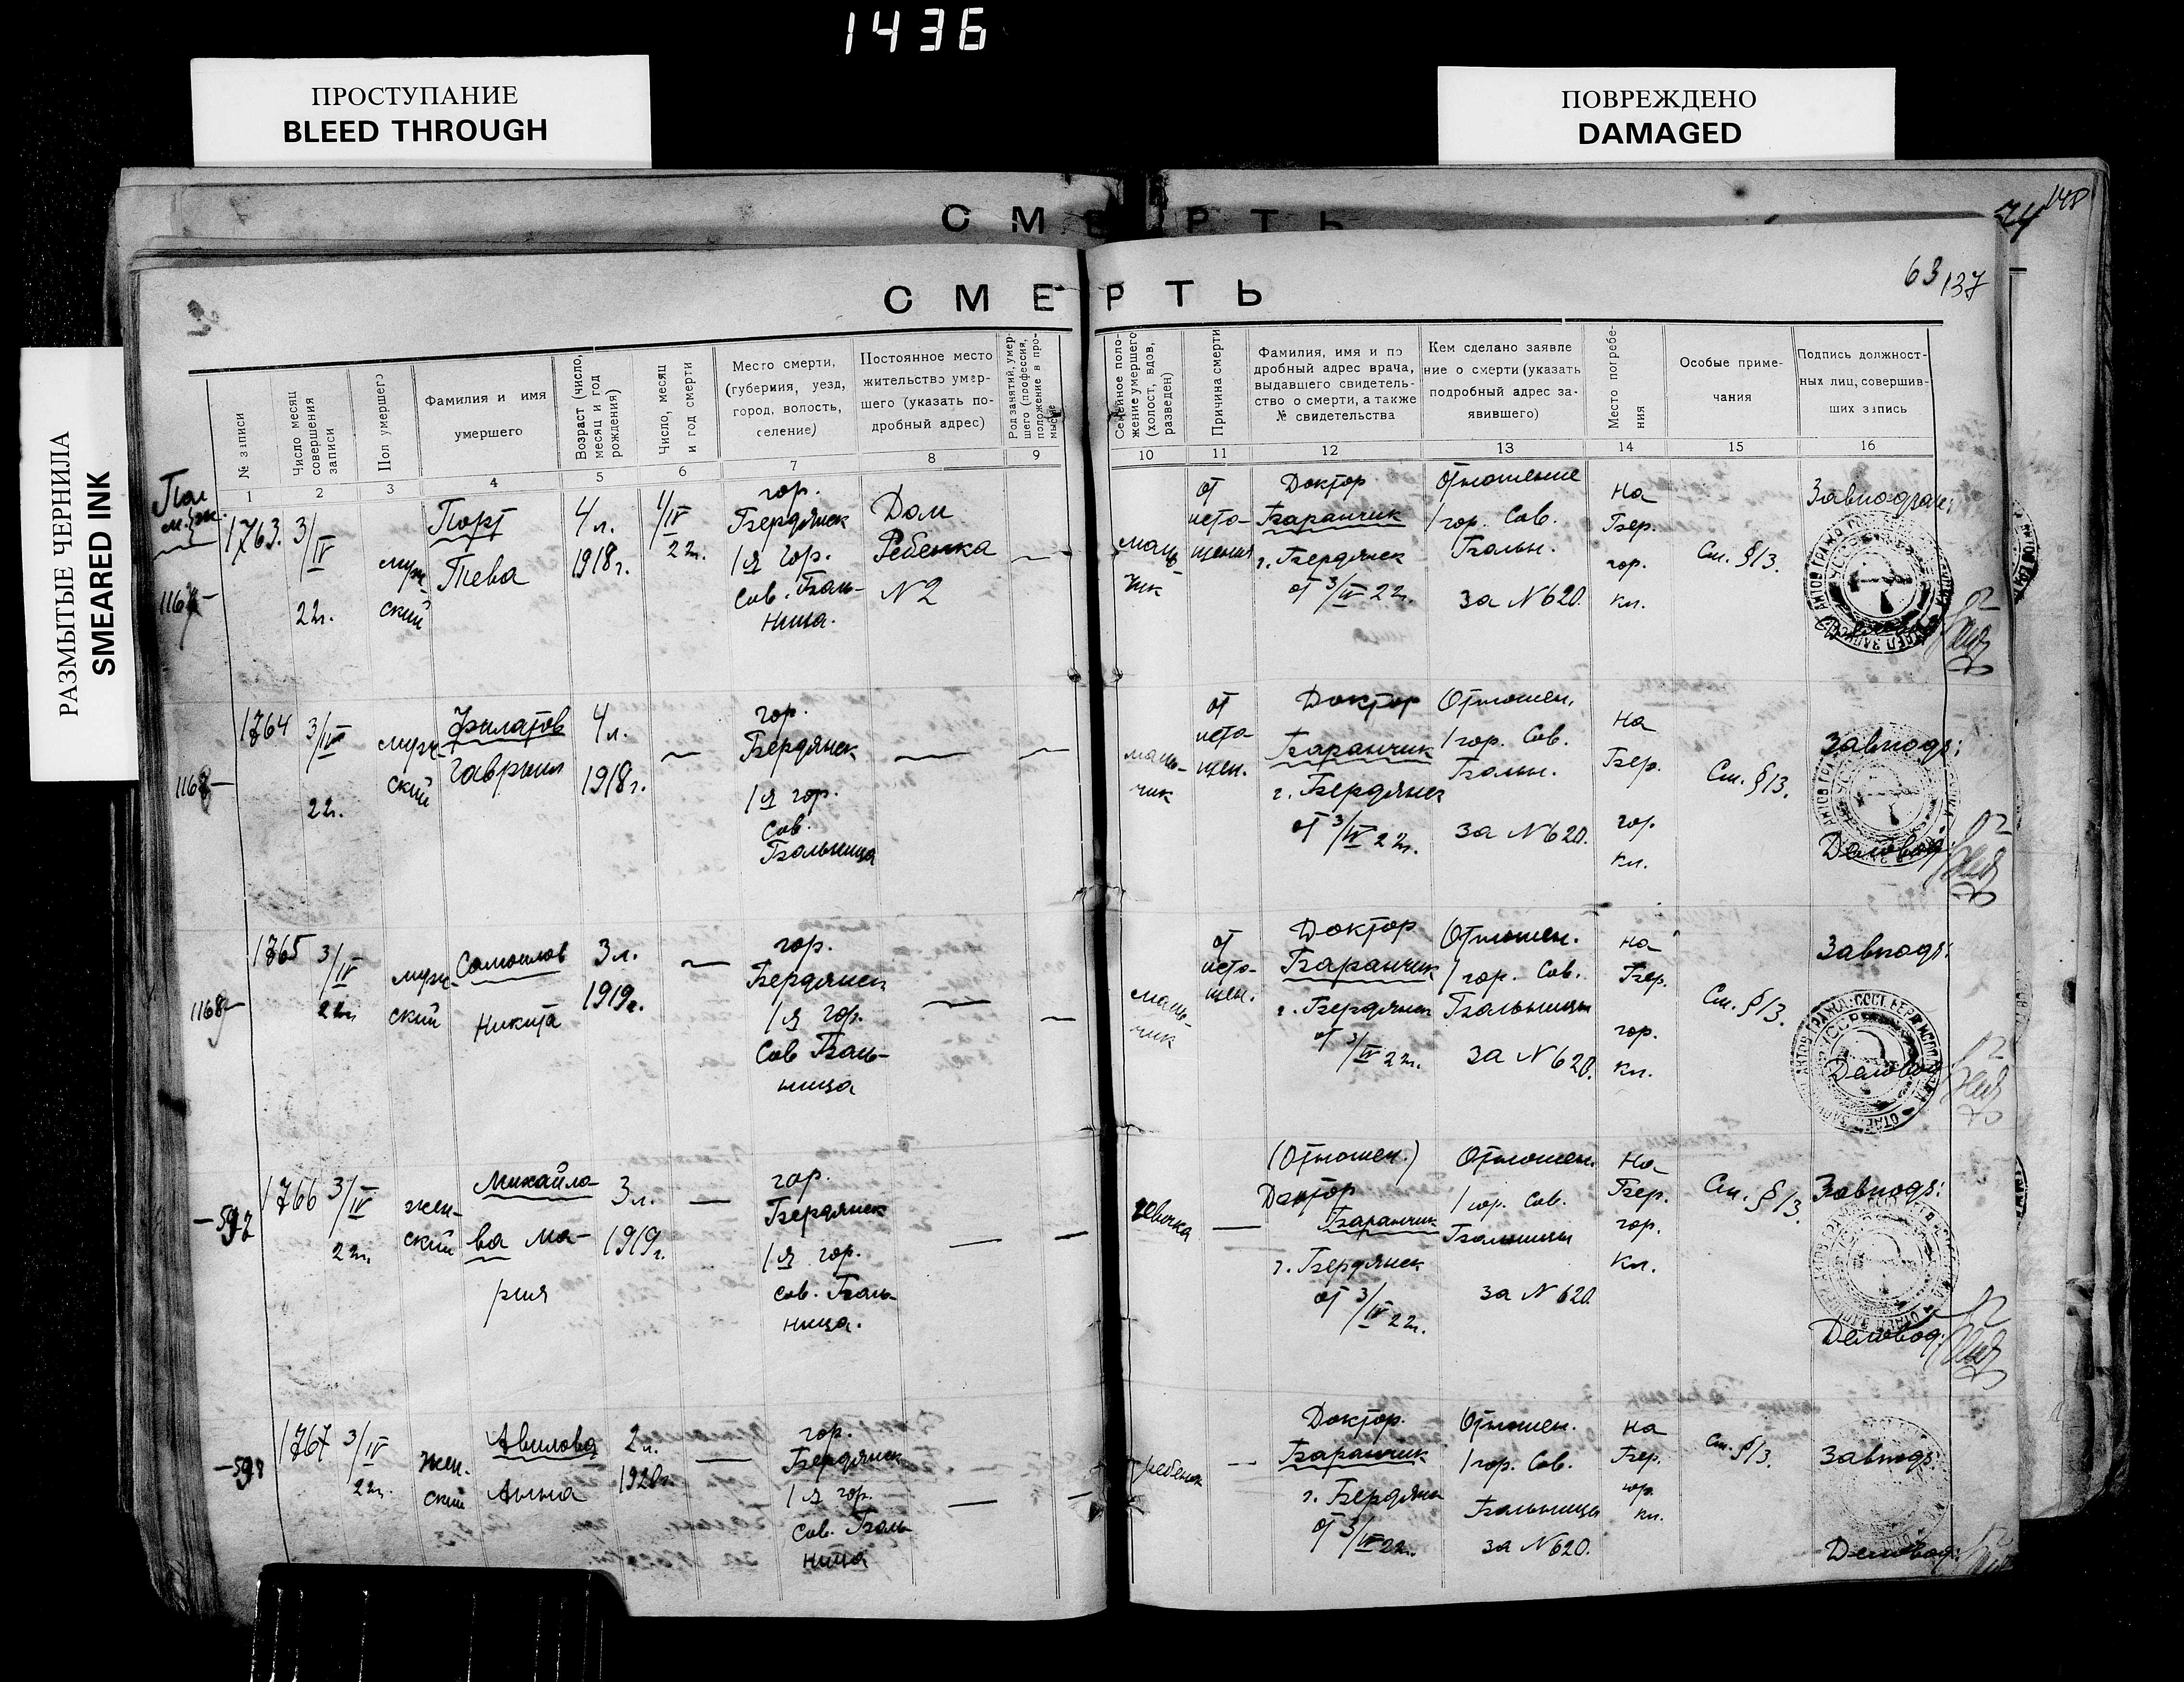 1436
ПРОСТУПАНИЕ
BLEED THROUGH
ПОВРЕЖДЕНО
DAMAGED
РАЗМЫТЫЕ ЧЕРНИЛА
SMEARED INK
СМЕРТЬ
74 148
СМЕРТЬ
63 137
№ записи
Число месяц совершения записи
Пол умершего
Фамилия и имя умершего
Возраст (число, месяц и год рождения)
Число, месяц и год смерти
Место смерти, (губерния, уезд, город, волость, селение)
Постоянное место жительство умершего (указать подробный адрес)
Род занятий, умершего (профессия, положение в промысле
Семейное положение умершего (холост, вдов, разведен)
Причина смерти
Фамилия, имя и подробный адрес врача, выдавшего свидетельство о смерти, а также № свидетельства
Кем сделано заявление о смерти (указать подробный адрес заявившего)
Место погребения
Особые примечания
Подпись должностных лиц, совершивших запись
1 2 3 4 5 6 7 8 9 10 11 12 13 14 15 16
Пол
м. ж.
1763. 3/IV 22г.
мужской
Порт
Тева
4 л.
1918 г.
1/IV 22г.
гор.
Бердянск
1я гор.
Сов. Боль-
ница.
Дом
Ребенка
N 2
маль-
чик
от
исто-
щения
Доктор
Баранчик
г. Бердянск
от 3/IV 22г.
Отношение
1 гор. Сов.
Больн.
за N 620.
на
Бер.
гор.
кл.
См. § 13.
1764 3/IV 22г.
муж-
ский
Филатов
Гавриил
4 л.
1918 г.
гор.
Бердянск
1я гор.
Сов.
Больница
маль-
чик
от
исто
щен.
Доктор
Баранчик
г. Бердянск
от 3/IV 22г.
Отношен.
1 гор. Сов.
Больн.
за N 620.
на
Бер.
гор.
кл.
См. § 13.
Завподз:
Деловод:
1168
1765 3/IV 22г.
муж-
ский
Самоилов
Никита
3 л.
1919 г.
гор.
Бердянск
1я гор.
Сов Боль-
ница
маль-
чик
от
исто-
щен.
Доктор
Баранчик
г. Бердянск
от 3/IV 22г.
Отношен.
1 гор. Сов.
Больницы
за N 620.
на
Бер.
гор.
кл.
См. § 13.
Завподз:
Деловод
1766 3/IV 22г.
жен-
ский
Михайло-
ва Ма-
рия
3 л.
1919 г.
гор.
Бердянск
1я гор.
сов. Боль-
ница.
девочка
(Отношен.)
Доктор
Баранчик
г. Бердянск
от 3/IV 22г.
Отношен.
1 гор. Сов.
Больницы
за N 620.
на
Бер.
гор.
кл.
См. § 13.
Завподз:
Деловод:
1767 3/IV 22г.
жен-
ский
Авилова
Анна
2 л.
1920 г.
гор.
Бердянск
1я гор.
сов. Боль-
ница
ребенок
Доктор.
Баранчик
г. Бердянск
от 3/IV 22г.
Отношен.
1 гор. Сов.
Больницы
за N 620.
на
Бер.
гор.
кл.
См. § 13.
Завподз:
Деловод: